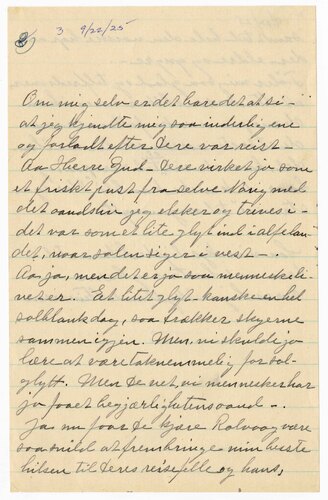 3 9/22/25
Om mig selv er det bare det at si –
at jeg kjendte mig saa inderlig ene
og forladt efter Dere var reist –
Aa Herre Gud – Dere virket jo som
et friskt pust fra selve Norig med
det aandsliv jeg elsker og trives i –
det var som et lite glyt ind i alfelan
det, naar solen siger i vest – .
Aa ja, men det er jo saa menneskeli-
vet er. Et litet glyt – kanske en hel
solblank dag, saa trækker skyerne
sammen igjen. Men, vi skulde jo
lære at være taknemmelig for sol-
glytt. Men De vet, vi mennesker har
jo faaet begjærlighetens aand – .
Ja nu faar De kjære Rolvaag være
saa snild at frembringe min beste
hilsen til Deres reisefælle og hans,